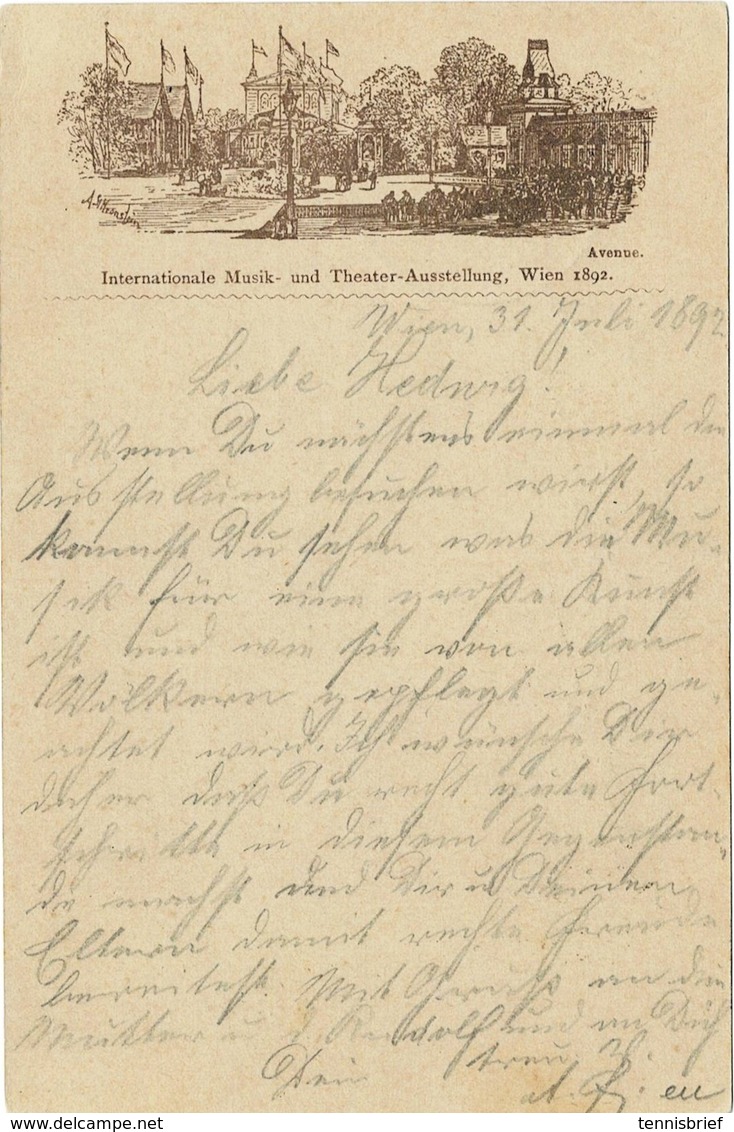 Avenue.
Internationale Musik- und Theater-Ausstellung, Wien 1892.
Wien, 31. Juli 1892
Liebe Hedwig!
Wenn Du nächstens einmal die
Ausstellung besuchen wirst, so
kannst Du sehen was die Mu-
sik für eine große Kunst
ist und wie sie von allen
Völkern gepflegt und ge-
achtet wird. Ich wünsche Dir
daher daß Du recht gute Fort-
schritte in diesem Gegenstan-
de machst und Dir u Deinen
Eltern damit rechte Freude
bereitest. Mit Gruß an die
Mutter u d Rudolf und an Dich
Dein treu.
tennisbrief